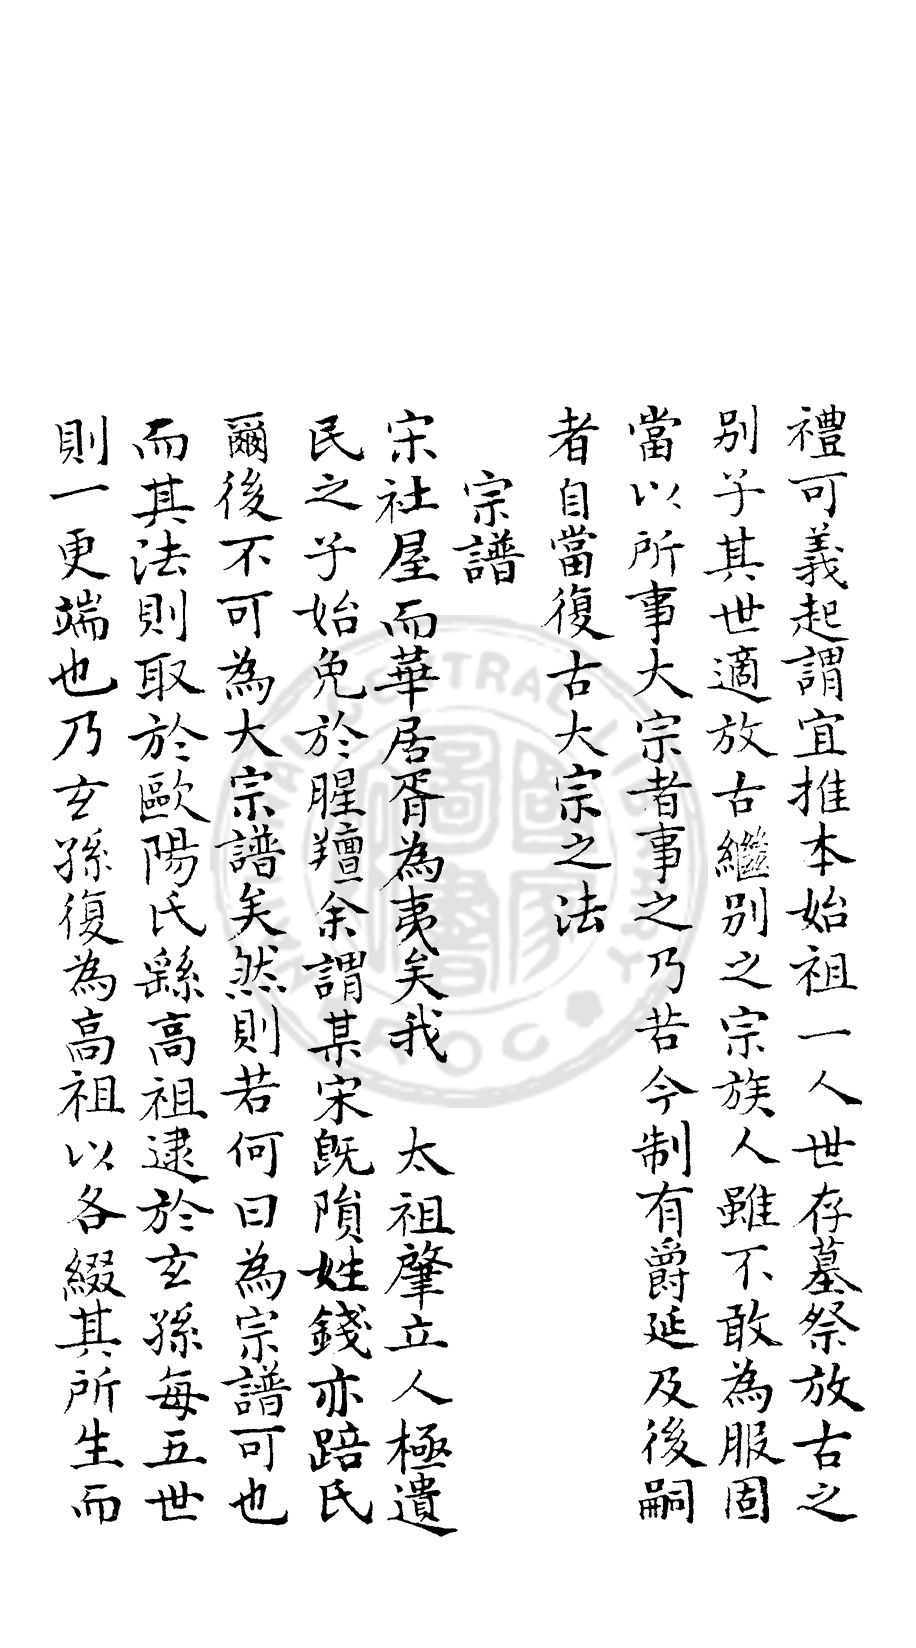 禮可義起謂宜推本始祖一人世存墓祭放古之
别子其世適放古繼别之宗族人雖不敢為服固
當以所事大宗者事之乃若今制有爵延及後嗣
者自當復古大宗之法
宗譜
宋社屋而華居胥為夷矣我 太祖肇立人極遺
民之子始免於腥羶余謂某宋旣隕姓錢亦踣氏
爾後不可為大宗譜矣然則若何曰為宗譜可也
而其法則取於歐陽氏繇高祖逮於玄孫每五世
則一更端也乃玄孫復為高祖以各綴其所生而